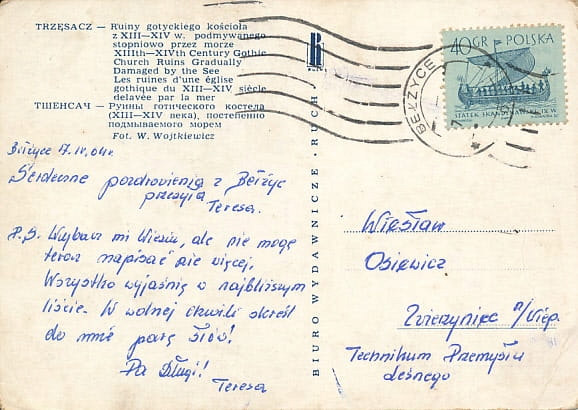 TRZĘSACZ — Ruiny gotyckiego kościoła
z XIII—XIV w. podmywanego
stopniowo przez morze
XIIIth—XIVth Century Gothic
Church Ruins Gradually
Damaged by the See
Les ruines d'une église
gothique du XIII—XIV siècle
delavée par la mer
ТШЕНСАЧ — Руины готического костела
(XIII—XIV века), постепенно
подмываемого морем
Fot. W. Wojtkiewicz
Bełżyce 17.IV.64r.
Serdeczne pozdrowienia z Bełżyc
przesyła
Teresa.
P.S. Wybacz mi Wiesiu, ale nie mogę
teraz napisać nic więcej.
Wszystko wyjaśnię w najbliższym
liście. W wolnej chwili skreśl
do mnie parę słów!
Pa Długi!
Teresa
BIURO WYDAWNICZE · RUCH
40 GR POLSKA
STATEK SKANDYNAWSKI IX W.
BEŁŻYCE
Wiesław
Osiewicz
Zwierzyniec n/Wiep.
Technikum Przemysłu
Leśnego